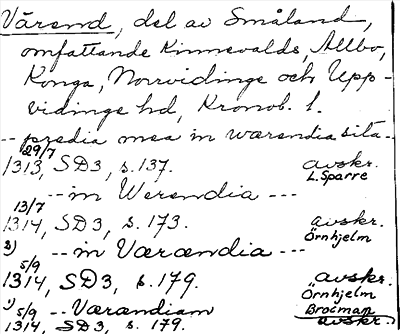 Värend, del av Småland,
omfattande Kinnevalds, Allbo,
Konga, Norrvidinge och Upp-
vidinge hd, Kronob. l.
-- predia mea in warendia sita --
29/7
1313, SD3, s. 137. avskr.
L. Sparre
-- in Werendia ---
13/7
1314, SD3, s. 173. avskr.
Örnhjelm
2) -- in Værændia --
5/9
1314, SD3, s. 179. avskr.
Örnhjelm
1) -- Værændiam Brocman
5/9
1314, SD3, s. 179. avskr.